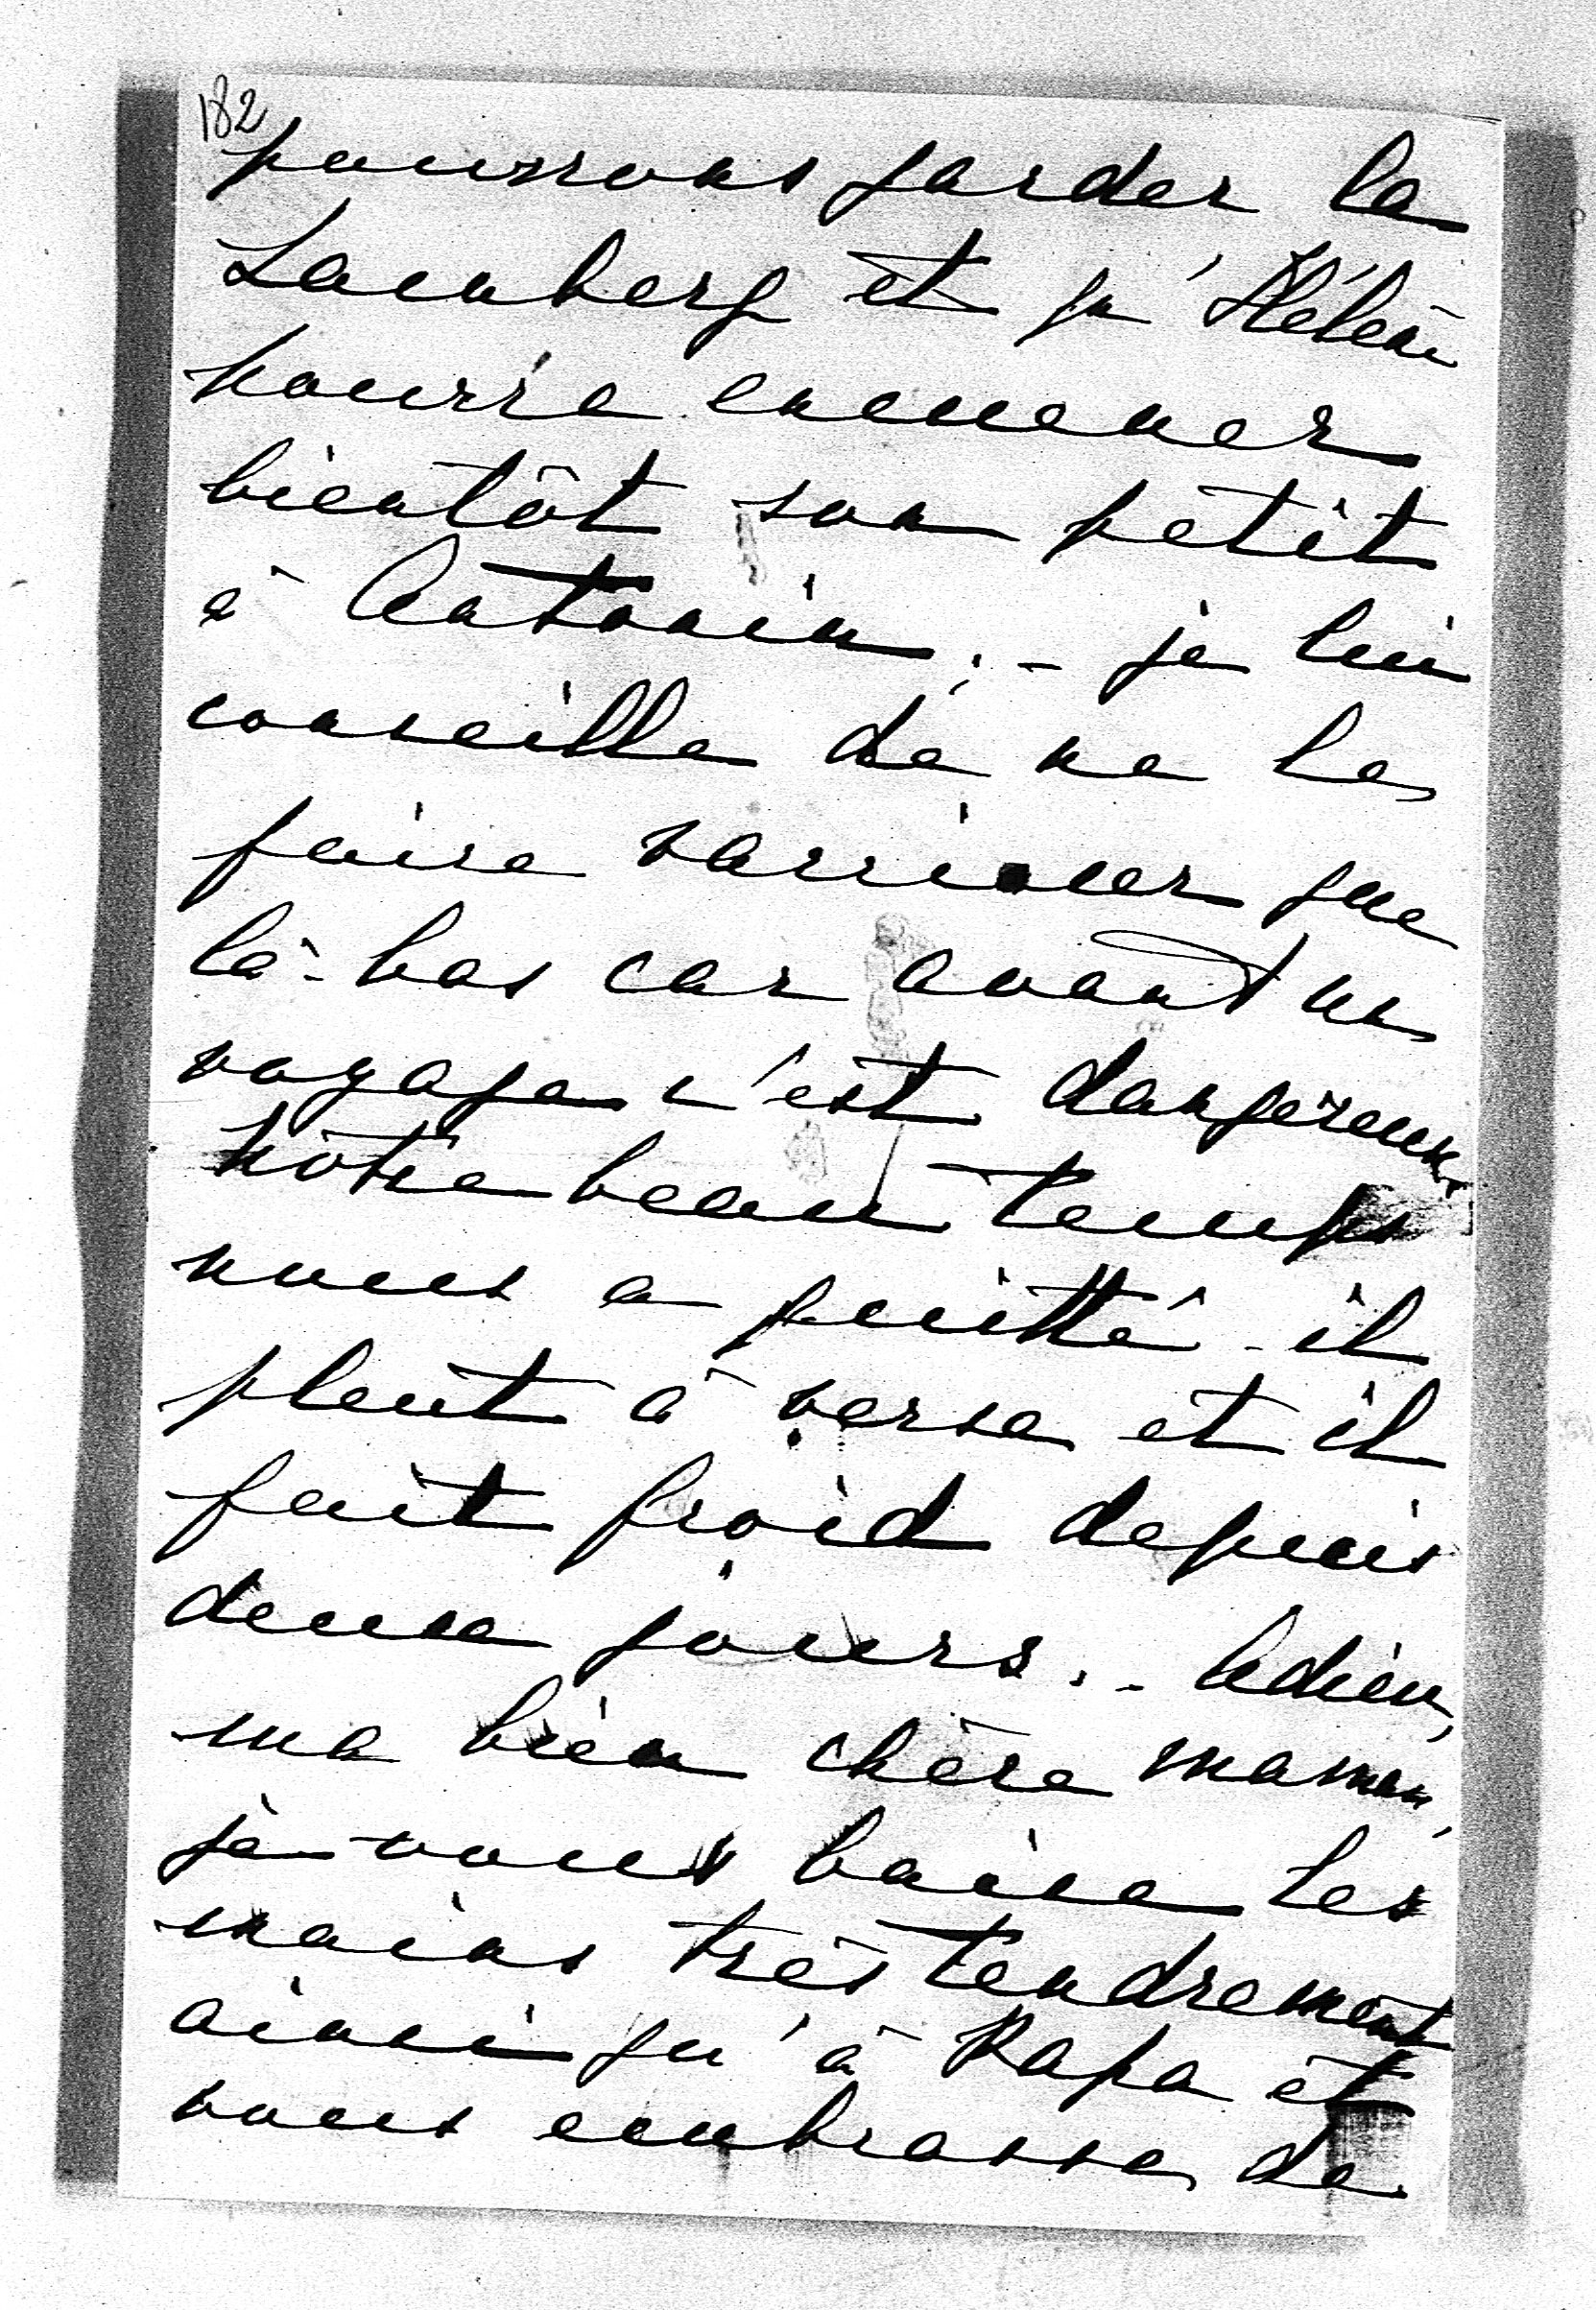 182
pourrons garder la
Launberg et qu'Hélène
pourra emmener
bientôt son petit
à Antonin. - je lui
conseille de ne le
faire vacciner que
là-bas car avant un
voyage c'est dangereux
Nôtre beau temps
nous a quitté - il
pleut à verse et il
fait froid depuis
deux jours. - Adieu,
ma bien chère maman,
je vous baise les
mains très tendrement
ainsi qu'à Papa et
vous embrasse de